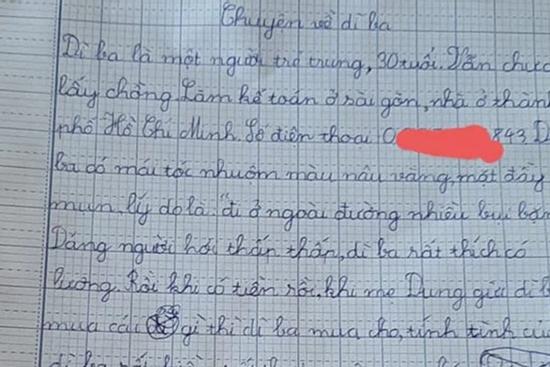 Chuyện về dì ba
Dì ba là một người trẻ trung, 30 tuổi. Vẫn chưa
lấy chồng. Làm kế toán ở sài gòn, nhà ở thàn
phố Hồ Chí Minh. Số điện thoại 0 843. D
ba có mái tóc nhuộm màu nâu vàng, mặt đầy
mụn, lý do là "đi ở ngoài đường nhiều bụi bặm
Dáng người hơi thấp thấp, dì ba rất thích có
lương. Rồi khi có tiền rồi, khi mẹ Dung giục dì b
mua cái gì thì dì ba mua cho, tính tình củ
dì ba